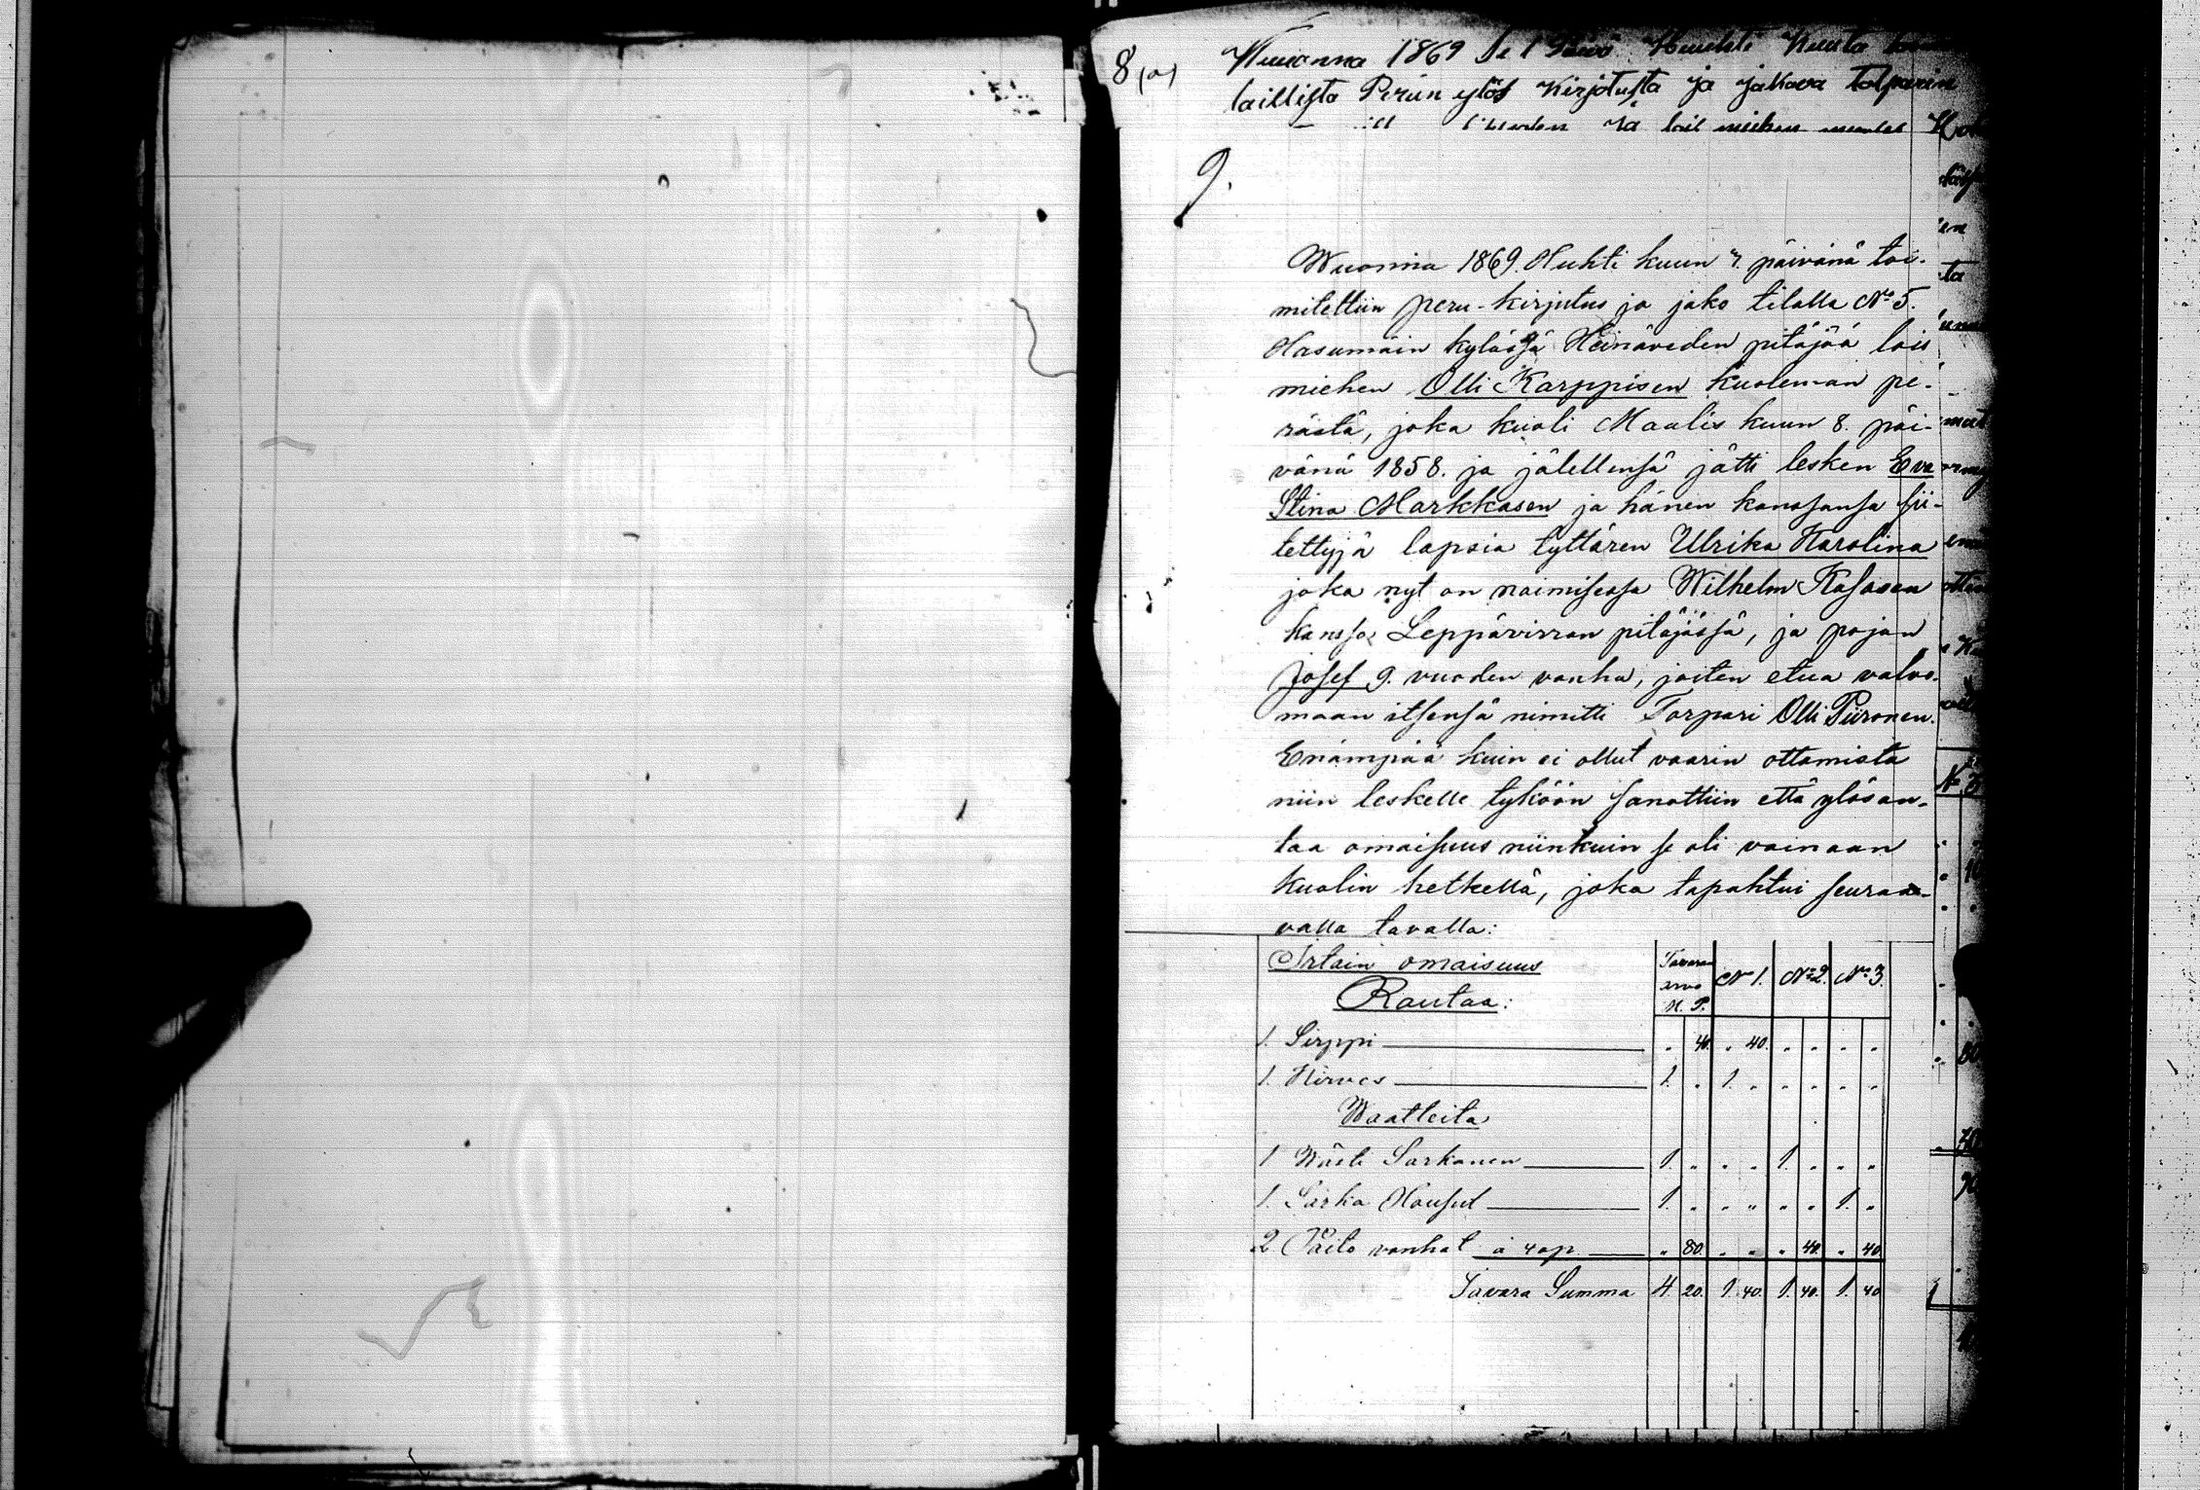 8 (a)
Wuuonna 1869 se 1 Päivä Huuhti Kuuta
laillista Perün ylös Kirjotusta ja jakava tolparin
lois miehen
9.
Wuonna 1869. Huhti kuun 7. päivänä toi-
mitettiin peru-kirjutus ja jako tilalla No 5.
Hasumäin kylässä Heinäveden pitäjää lois
miehen Olli Karppisen kuoleman pe-
rästä, joka kuoli Maalis kuun 8. päi-
vänä 1858. ja jälellensä jätti lesken Eva
Stina Markkasen ja hänen kanssansa sii-
tettyjä lapsia tyttären Ulrika Karolina
joka nyt on naimisessa Wilhelm Kasasen
kanssa Leppävirran pitäjässä, ja pojan
Josef 9. vuoden vanha, joiten etua valvo-
maan itsensä nimitti Torpari Olli Piironen.
Enämpää kuin ei ollut vaarin ottamista
niin leskelle tyköön sanottiin että ylösan-
taa omaisuus niinkuin se oli vainaan
kuolin hetkellä, joka tapahtui seuraa-
valla tavalla:
Irtain omaisuus Tavaran arvo N. P. No 1. No 2. No 3.
Rautaa:
1. Sirppi " 40. " 40. " " " "
1. Kirves 1. " 1. " " " " "
Waatteita
1 Wästi Sarkanen 1. " " " 1. " " "
1. Sarka Housut 1. " " " " " 1. "
2 Paito vanhat à 40p " 80. " " " 40. " 40
Tavara Summa 4. 20. 1. 40. 1. 40. 1. 40